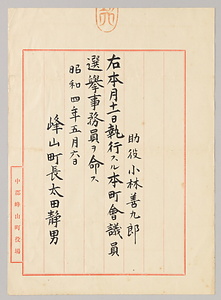 助役 小林善九郎
右本月十一日執行スル本町會議員
選擧事務員ヲ命ス
昭和四年五月六日
峰山町長太田靜男
中郡峰山町役場